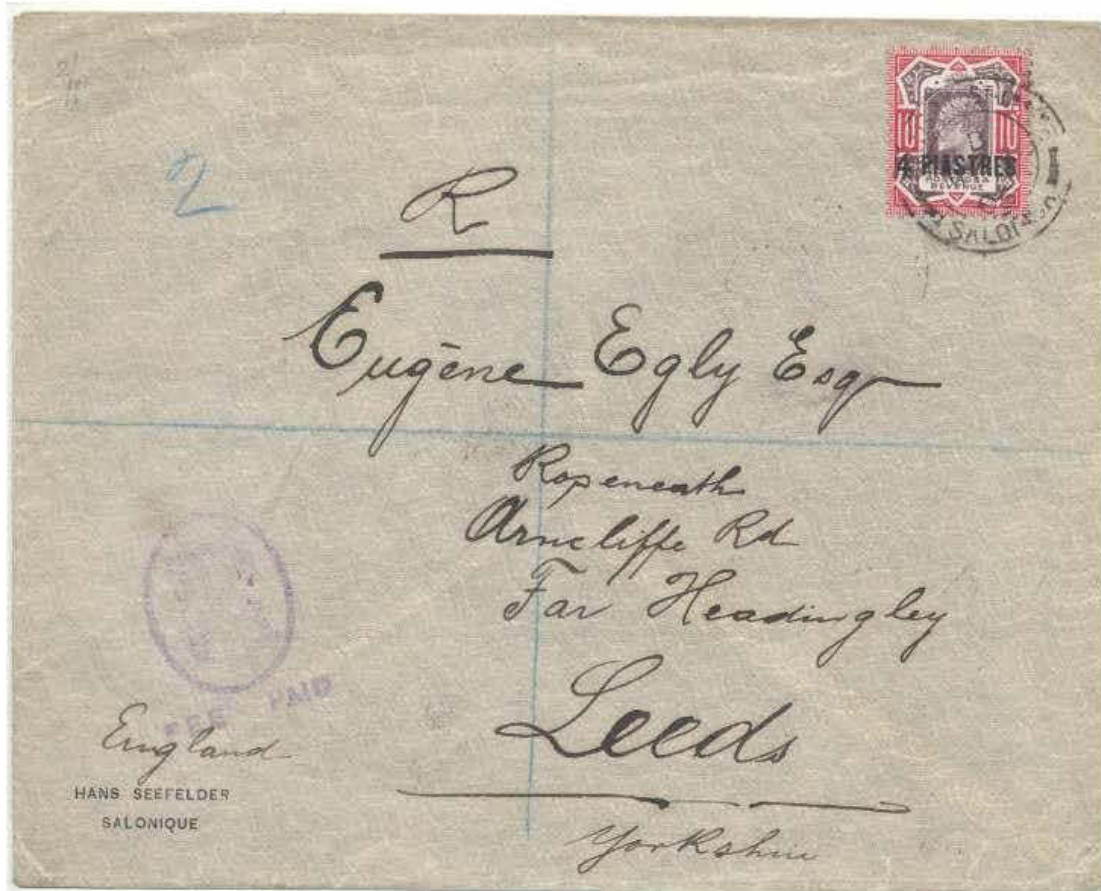 10 10
4 PIASTRES
REVENUE
R
Eugène Egly Esqr
Roseneath
Arncliffe Rd
Far Headingley
Leeds
Yorkshire
FEE PAID
England
HANS SEEFELDER
SALONIQUE